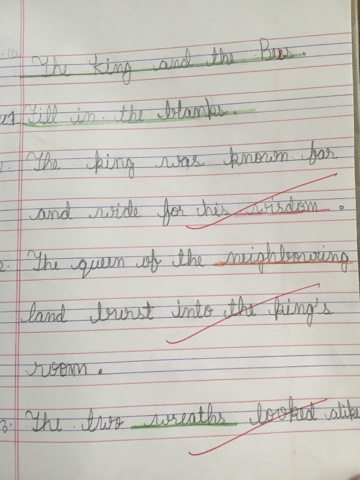 The King and the Bees.
Fill in the blanks.
1. The king was known far
and wide for his wisdom.
2. The queen of the neighbouring
land burst into the king's
room.
3. The two wreaths looked alike